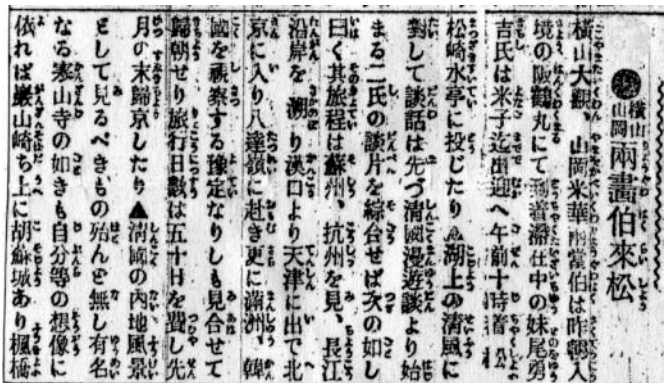 横山
山岡 兩畫伯來松
横山大觀、山岡米華兩畫伯は昨朝入
境の阪鶴丸にて到着滯在中の妹尾勇
吉氏は米子迄出迎へ午前十時着
松崎水亭に投じたり 湖上の清風に
對して談話は先づ清國漫遊談より始
まる二氏の談片を綜合せば次の如し
曰く其旅程は蘇州、杭州を見、長江
沿岸を溯り漢口より天津に出で北
京に入り八達嶺に赴き更に滿洲、韓
國を視察する豫定なりしも見合せて
歸朝せり旅行日數は五十日を費し先
月の末歸京したり▲清國の內地風景
として見るべきもの殆んど無し有名
なる寒山寺の如きも自分等の想像に
依れば巖山崎ち上に胡蘇城あり楓橋